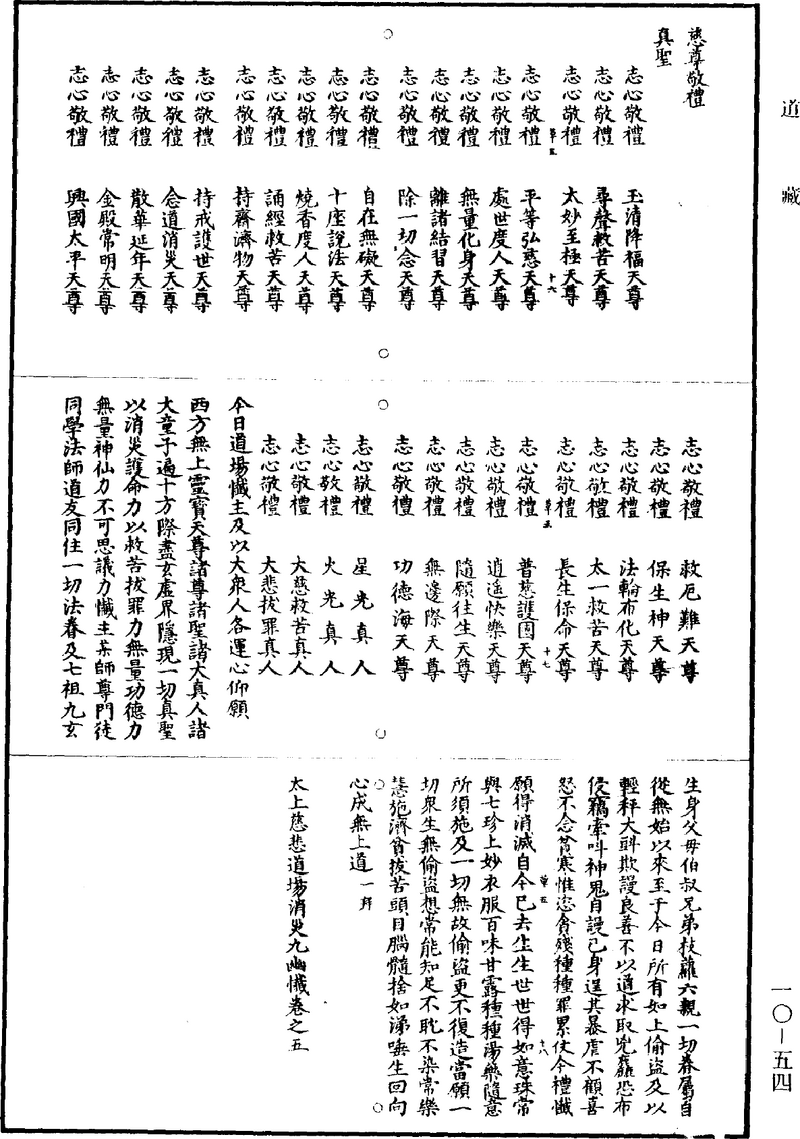 道藏
慈尊敬禮
真聖
志心敬禮 玉清降福天尊
志心敬禮 尋聲救苦天尊
志心敬禮 太妙至極天尊
草五 十六
志心敬禮 平等弘慈天尊
志心敬禮 處世度人天尊
志心敬禮 無量化身天尊
志心敬禮 離諸結習天尊
志心敬禮 除一切念天尊
志心敬禮 自在無礙天尊
志心敬禮 十座說法天尊
志心敬禮 燒香度人天尊
志心敬禮 誦經救苦天尊
志心敬禮 持齋濟物天尊
志心敬禮 持戒護世天尊
志心敬禮 念道消災天尊
志心敬禮 散華延年天尊
志心敬禮 金殿常明天尊
志心敬禮 興國太平天尊
志心敬禮 救厄難天尊
志心敬禮 保生神天尊
志心敬禮 法輪布化天尊
志心敬禮 太一救苦天尊
志心敬禮 長生保命天尊
草五 十七
志心敬禮 普慈護國天尊
志心敬禮 逍遥快樂天尊
志心敬禮 隨願往生天尊
志心敬禮 無邊際天尊
志心敬禮 功德海天尊
志心敬禮 星光真人
志心敬禮 火光真人
志心敬禮 大慈救苦真人
志心敬禮 大悲拔罪真人
今日道場懺主及以大衆人各運心仰願
西方無上靈寶天尊諸尊諸聖諸大真人諸
大童子遍十方際盡玄虛界隱現一切真聖
以消災護命力以救苦拔罪力無量功德力
無量神仙力不可思議力懺主某師尊門徒
同學法師道友同住一切法眷及七祖九玄
生身父母伯叔兄弟枝蘿六親一切眷屬自
從無始以來至于今日所有如上偷盗及以
輕秤大㪷欺謾良善不以道求取兇麤恐布
侵竊牽叫神鬼自謾己身逞其暴虐不顧喜
怒不念貧寒惟恣貪殘種種罪累仗今禮懺
草五 十八
願得消滅自今已去生生世世得如意珠常
與七珍上妙衣服百味甘露種種湯藥隨意
所須施及一切無故偷盗更不復造當願一
切衆生無偷盗想常能知足不耽不染常樂
慧施濟貧拔苦頭目腦髓捨如涕唾生回向
心成無上道一拜
太上慈悲道場消災九幽懺卷之五
一〇—五四